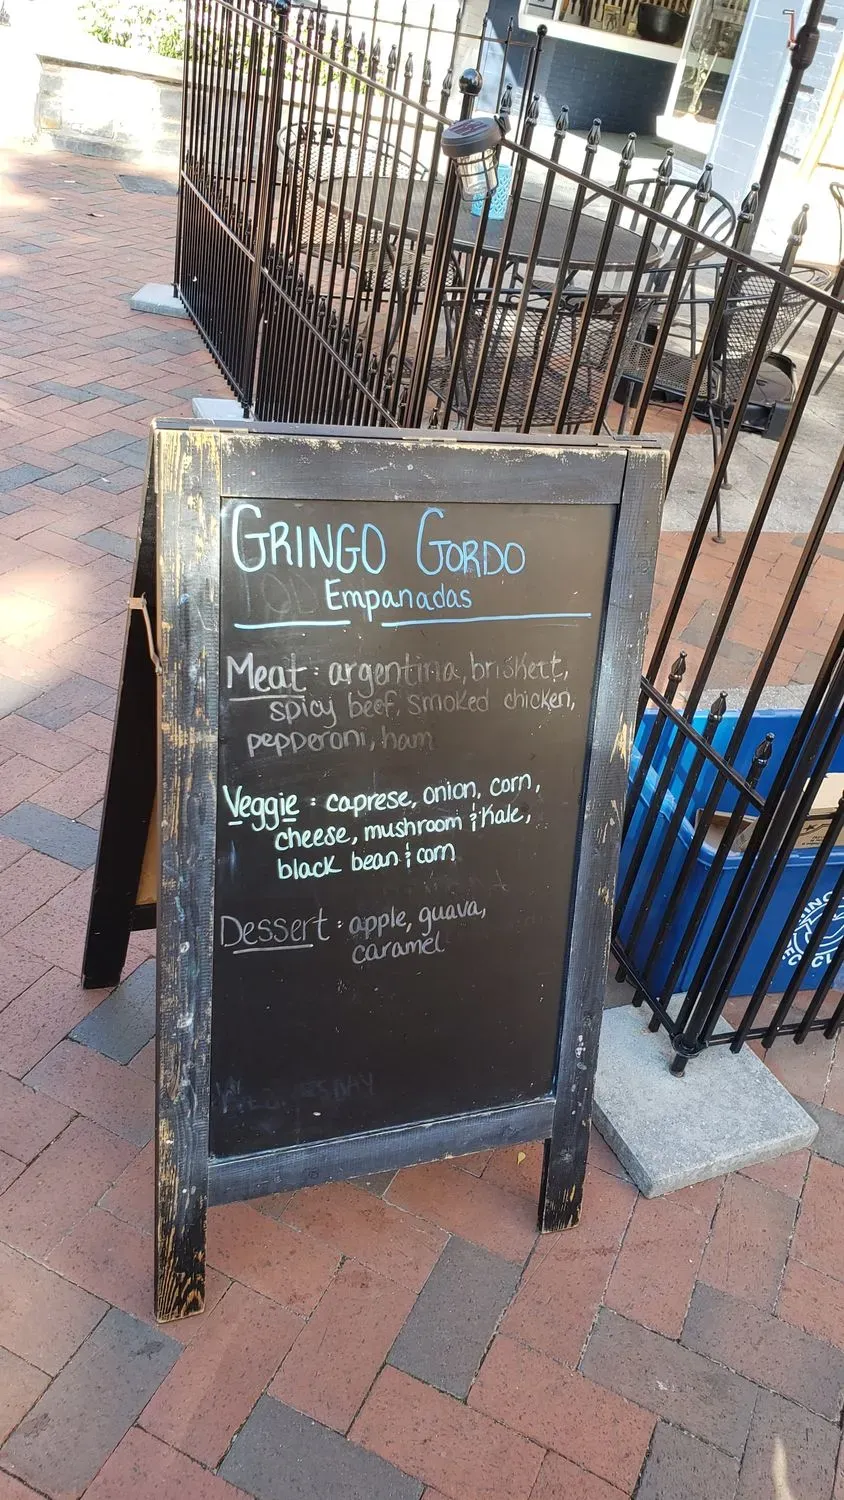 GRINGO GORDO
Empanadas
Meat: argentina, briskett,
spicy beef, smoked chicken,
pepperoni, ham
Veggie: caprese, onion, corn,
cheese, mushroom & Kale,
black bean & corn
Dessert: apple, guava,
caramel
WEDNESDAY